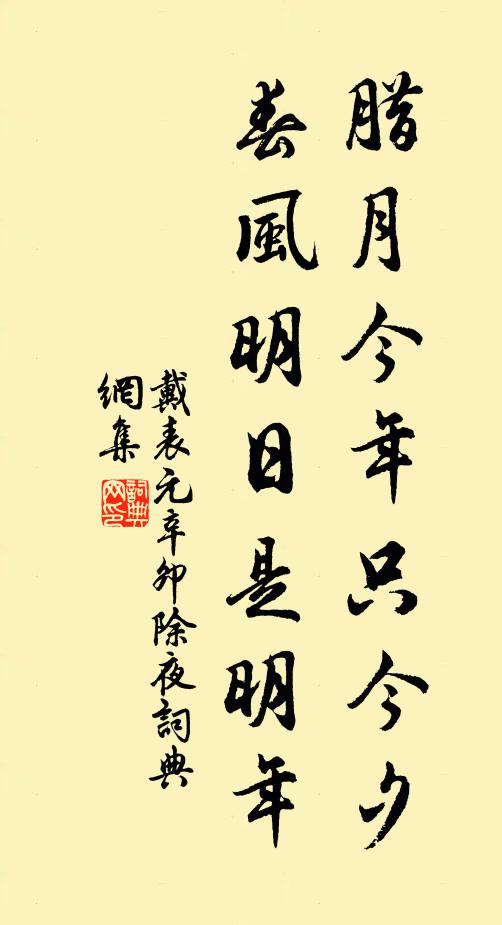 腊月今年只今夕
春風明日是明年
戴表元辛卯除夜詞典
網集
詞典
网印